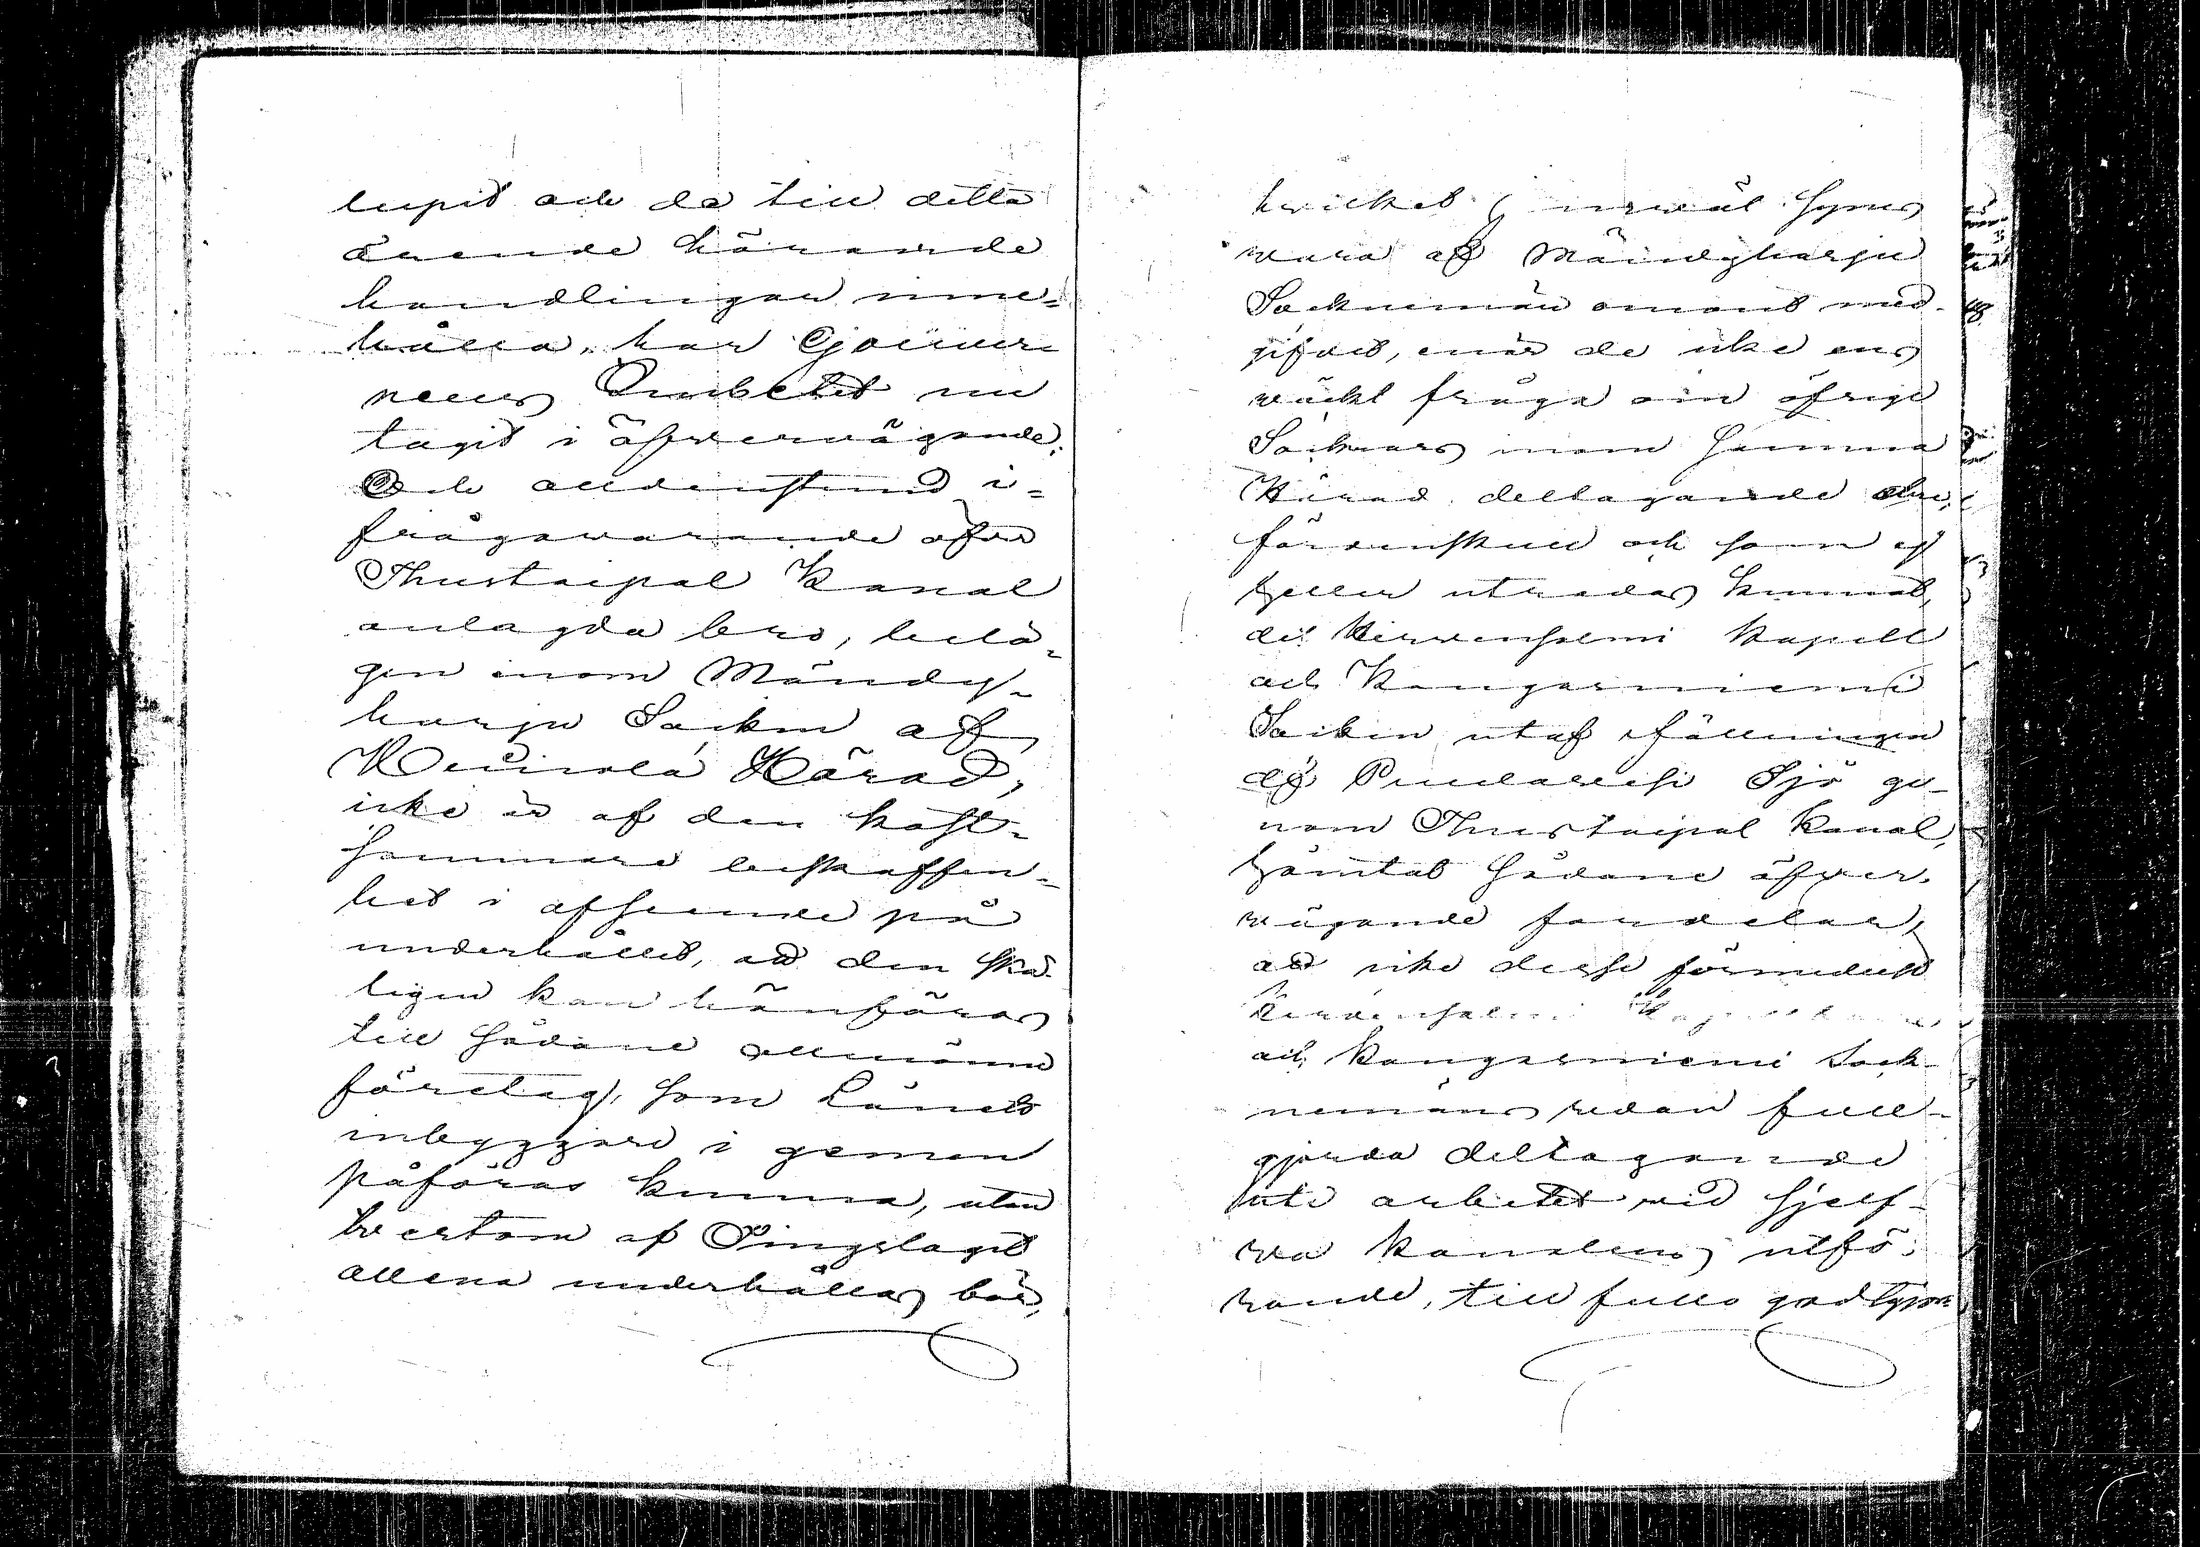 lupit och de till detta
ärende hörande
handlingar inne-
hålla, har Gouver-
neurs Embetet nu
tagit i öfvervägande;
Och alldenstund i-
frågavarande öfver
Thustaipal Kanal
anlagda bro, belä-
gen inom Mändy-
harju Sockn af
Härad,
icke är af den kost-
sammare beskaffen-
het i afseende på
underhållet, att den skä-
ligen kan hänföras
till sådane allmänna
företag, som Länets
inbyggare i gemen
påföras kunna, utan
tvertom af Tingslaget
allena underhållas bör,
hvilket jemväl synes
vara af Mändyharju
Socknemän omant med-
gifvet, enär de icke ens
väckt fråga om öfrige
Socknars inom samma
Härad deltagande
fördenskull och som ej
heller utredas kunnat,
det Hirvensalmi Kapell
och Kangasniemi
Sockn utaf fällningen
af Puulavesi Sjö ge-
nom Thustaipal Kanal,
hämtat sådane öfver-
vägande fördelar,
att icke desse förmedelst
Hirvensalmi
och Kangasniemi Sock-
nemäns redan full-
gjorda deltagande
uti arbetet vid sjelf-
va kanalens utfö-
rande, till fullo godtgjorts